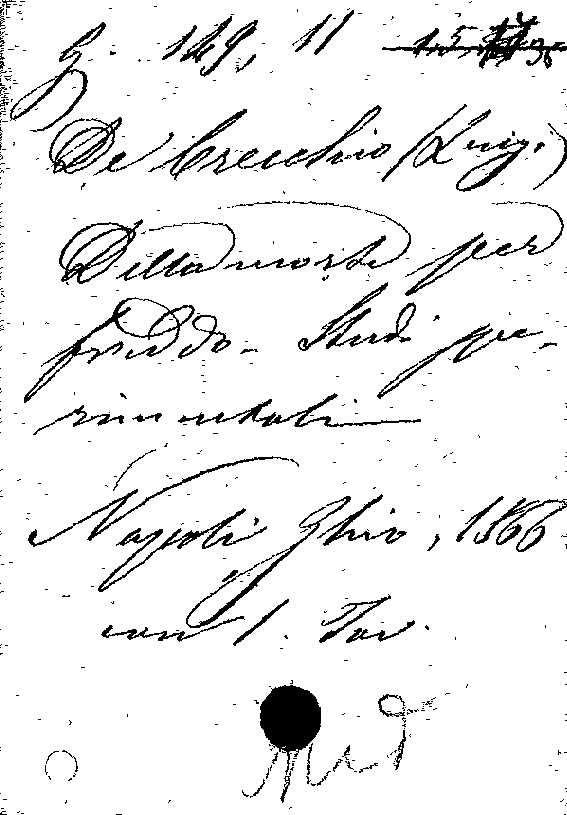 G. 149, 11
De Crecchio (Luigi)
Della morte per
freddo - Studi spe-
rimentali
Napoli Ghio, 1866
con 1. Tav.
Med